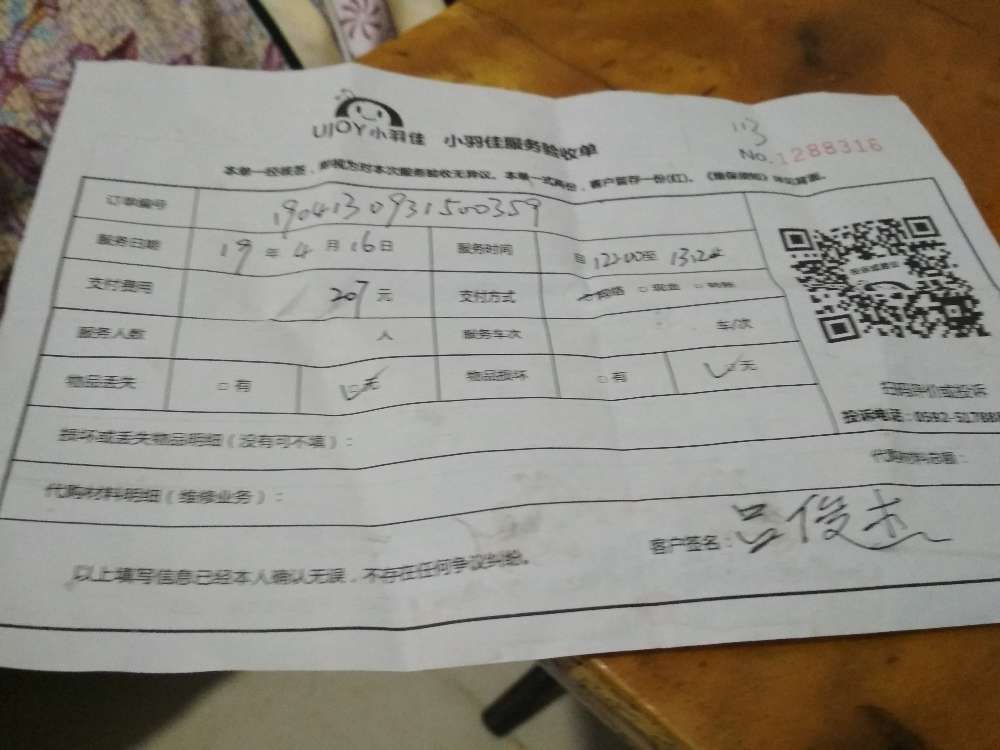 UJOY小羽佳 小羽佳服务验收单
113
No.1288316
本单一经核签，即视为对本次服务验收无异议。本单一式两份，客户留存一份(红)。
订单编号 190413093150035​9
服务日期 19年4月16日 服务时间 自12:00至13:24
支付费用 207元 支付方式 网络 □现金 □转账
服务人数 人 服务车次 车/次
物品丢失 □有 □无 物品损坏 □有 □无
损坏或丢失物品明细（没有可不填）：
代购材料明细（维修业务）： 代购材料总额：
扫码评价或投诉
投诉电话：0592-517888
以上填写信息已经本人确认无误，不存在任何争议纠纷。
客户签名：吕俊杰